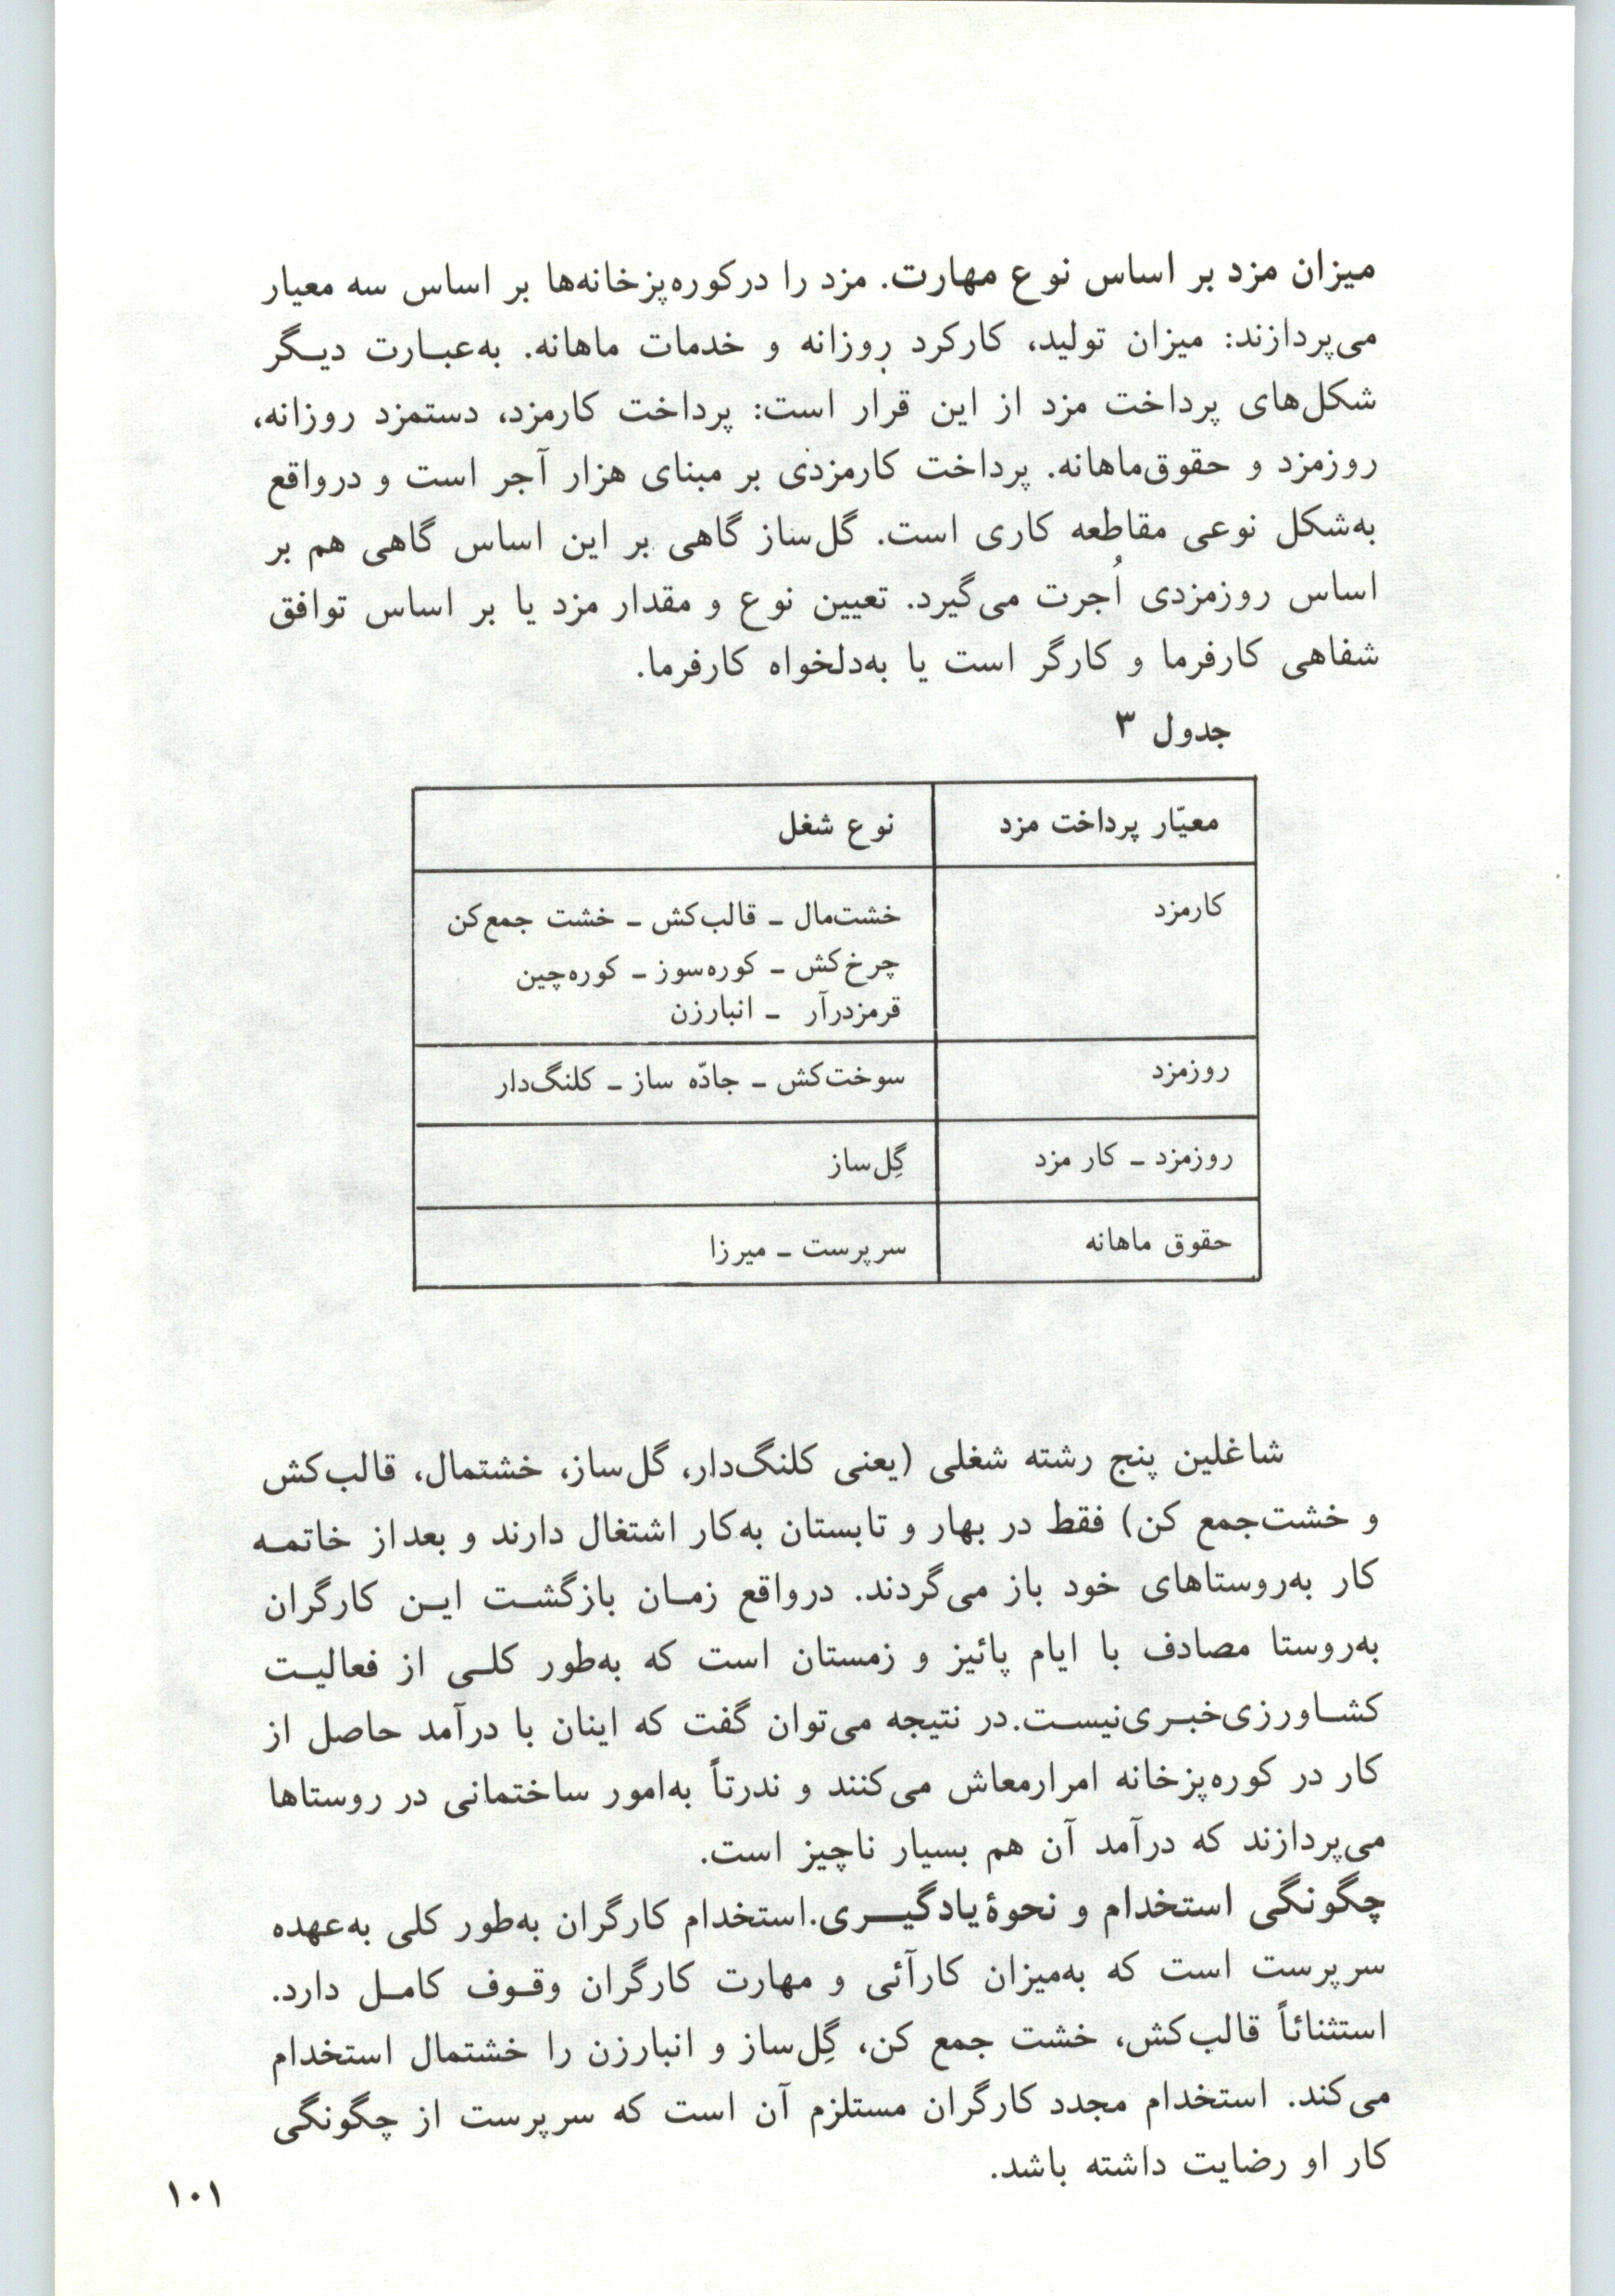 میزان مزد بر اساس نوع مهارت. مزد را درکوره‌پزخانه‌ها بر اساس سه معیار
می‌پردازند: میزان تولید، کارکرد روزانه و خدمات ماهانه. به‌عبارت دیگر
شکل‌های پرداخت مزد از این قرار است: پرداخت کارمزد، دستمزد روزانه،
روزمزد و حقوق‌ماهانه. پرداخت کارمزدی بر مبنای هزار آجر است و درواقع
به‌شکل نوعی مقاطعه کاری است. گل‌ساز گاهی بر این اساس گاهی هم بر
اساس روزمزدی اُجرت می‌گیرد. تعیین نوع و مقدار مزد یا بر اساس توافق
شفاهی کارفرما و کارگر است یا به‌دلخواه کارفرما.
جدول ۳
معیّار پرداخت مزد نوع شغل
کارمزد خشت‌مال ـ قالب‌کش ـ خشت جمع‌کن
چرخ‌کش ـ کوره‌سوز ـ کوره‌چین
قرمزدرآر ـ انبارزن
روزمزد سوخت‌کش ـ جادّه ساز ـ کلنگ‌دار
روزمزد ـ کار مزد گِل‌ساز
حقوق ماهانه سرپرست ـ میرزا
شاغلین پنج رشته شغلی (یعنی کلنگ‌دار، گل‌ساز، خشتمال، قالب‌کش
و خشت‌جمع کن) فقط در بهار و تابستان به‌کار اشتغال دارند و بعداز خاتمه
کار به‌روستاهای خود باز می‌گردند. درواقع زمان بازگشت این کارگران
به‌روستا مصادف با ایام پائیز و زمستان است که به‌طور کلی از فعالیت
کشاورزی‌خبری‌نیست. در نتیجه می‌توان گفت که اینان با درآمد حاصل از
کار در کوره‌پزخانه امرارمعاش می‌کنند و ندرتاً به‌امور ساختمانی در روستاها
می‌پردازند که درآمد آن هم بسیار ناچیز است.
چگونگی استخدام و نحوهٔ‌یادگیری. استخدام کارگران به‌طور کلی به‌عهده
سرپرست است که به‌میزان کارآئی و مهارت کارگران وقوف کامل دارد.
استثنائاً قالب‌کش، خشت جمع کن، گِل‌ساز و انبارزن را خشتمال استخدام
می‌کند. استخدام مجدد کارگران مستلزم آن است که سرپرست از چگونگی
کار او رضایت داشته باشد.
۱۰۱